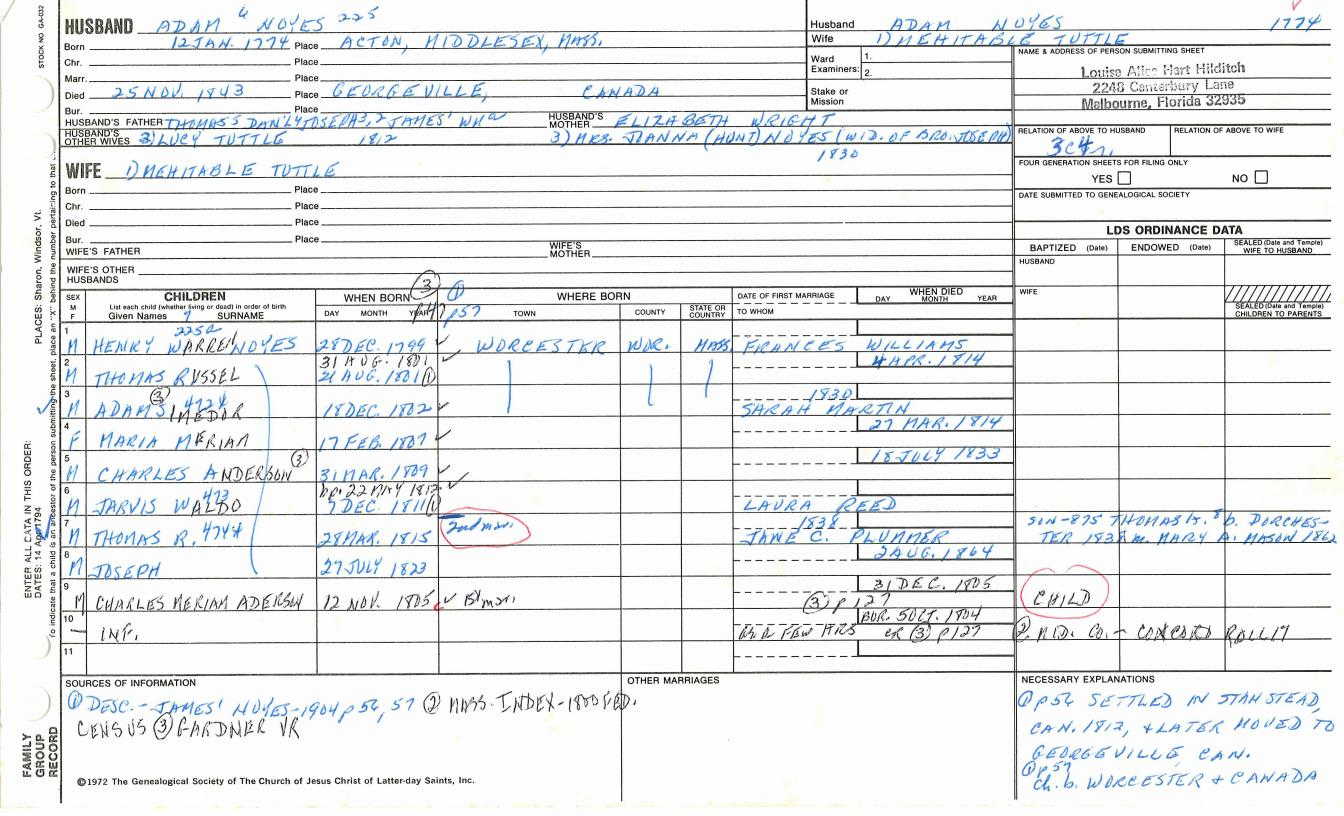 STOCK NO. GA-032
PLACES: Sharon, Windsor, Vt.
ENTER ALL DATA IN THIS ORDER:
DATES: 14 Apr 1794
To indicate that a child is an ancestor of the person submitting the sheet, place an "X" behind the number pertaining to that
FAMILY GROUP RECORD
HUSBAND ADAM 6 NOYES 225
Born 12 JAN. 1774 Place ACTON, MIDDLESEX, MASS.
Chr. Place
Marr. Place
Died 25 NOV. 1843 Place GEORGEVILLE, CANADA
Bur. Place
HUSBAND'S FATHER THOMAS5 DAN'L4 JOSEPH3, 2 JAMES' WMa
HUSBAND'S MOTHER ELIZABETH WRIGHT
HUSBAND'S OTHER WIVES 2) LUCY TUTTLE 1812 3) MRS. JOANNA (HUNT) NOYES (WID. OF BRO. JOSEPH)
1830
WIFE 1) MEHITABLE TUTTLE
Born Place
Chr. Place
Died Place
Bur. Place
WIFE'S FATHER
WIFE'S MOTHER
WIFE'S OTHER HUSBANDS
Husband ADAM NOYES 1774
Wife 1) MEHITABLE TUTTLE
Ward Examiners: 1.
2.
Stake or Mission
NAME & ADDRESS OF PERSON SUBMITTING SHEET
Louise Alice Hart Hilditch
2248 Canterbury Lane
Malbourne, Florida 32935
RELATION OF ABOVE TO HUSBAND RELATION OF ABOVE TO WIFE
3c4r.
FOUR GENERATION SHEETS FOR FILING ONLY
YES NO
DATE SUBMITTED TO GENEALOGICAL SOCIETY
LDS ORDINANCE DATA
BAPTIZED (Date) ENDOWED (Date) SEALED (Date and Temple) WIFE TO HUSBAND
HUSBAND
WIFE
SEALED (Date and Temple) CHILDREN TO PARENTS
SEX M F
CHILDREN
List each child (whether living or dead) in order of birth
Given Names 7 SURNAME
WHEN BORN 3
DAY MONTH YEAR p47
1 p57
WHERE BORN
TOWN COUNTY STATE OR COUNTRY
DATE OF FIRST MARRIAGE
TO WHOM
WHEN DIED
DAY MONTH YEAR
225a
1 M HENRY WARREN NOYES 28 DEC. 1799 ✓ WORCESTER WOR. MASS. FRANCES WILLIAMS
31 AUG. 1801 4 APR. 1814
2 M THOMAS RUSSEL 21 AUG. 1801 1
3 M ADAMS 3 472+ IMEDOR 18 DEC. 1802 ✓ 1830 SARAH MARTIN
27 MAR. 1814
4 F MARIA MERIAM 17 FEB. 1807 ✓
18 JULY 1833
5 M CHARLES ANDERSON 3 31 MAR. 1809 ✓
bp. 22 MAY 1812 ✓
6 M JARVIS WALDO 473 7 DEC. 1811 1 LAURA REED
7 M THOMAS R. 474+ 28 MAR. 1815 2nd marr. 1838 JANE C. PLUMMER
SON-875 THOMAS H.8 b. DORCHES-
TER 1838 m. MARY A. MASON 1862
2 AUG. 1864
8 M JOSEPH 27 JULY 1823
31 DEC. 1805
9 M CHARLES MERIAM ADERSON 12 NOV. 1805 ✓ 3 p127 CHILD
BUR. 5 OCT. 1804
10 — INF. FEW HRS GR 3 p127 2. MID. CO. - CONCORD ROLL 17
11
SOURCES OF INFORMATION
1 DESC.- JAMES' NOYES-1904 p56, 57 2 MASS. INDEX-1800 FED.
CENSUS 3 GARDNER VR
OTHER MARRIAGES
NECESSARY EXPLANATIONS
1 p56 SETTLED IN STANSTEAD,
CAN. 1812, & LATER MOVED TO
GEORGEVILLE, CAN.
1 p57
Ch. b. WORCESTER & CANADA
©1972 The Genealogical Society of The Church of Jesus Christ of Latter-day Saints, Inc.